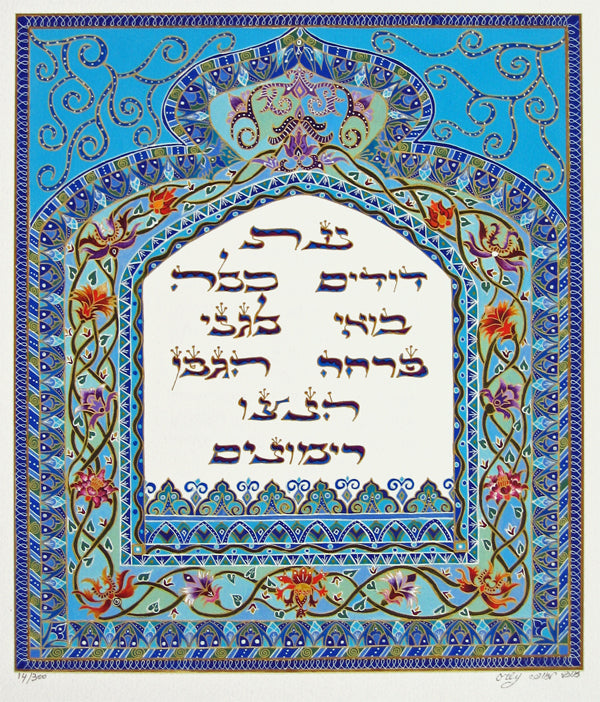 עת
דודים כלה
בואי לגני
פרחה הגפן
הנצו
רימונים
14/300